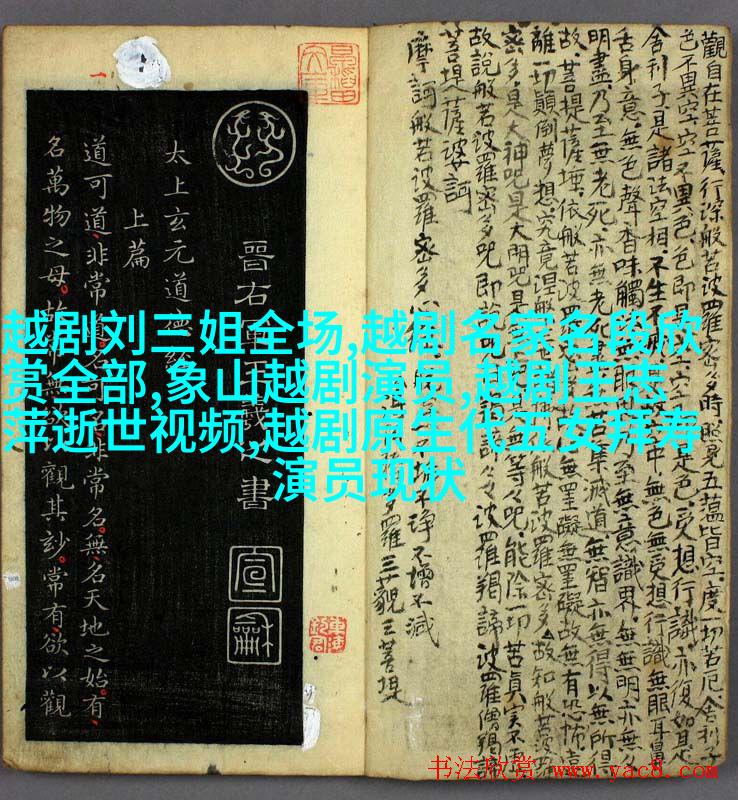 越剧刘三姐全场,越剧名家名段欣
赏全部,象山越剧演员,越剧王志
萍逝世视频,越剧原生代五女拜寿
演员现状
觀自在菩薩行深般若波羅密多時照見五蘊皆空度一切若厄舍利子
色不異空空不異色色即是空是色受想行識亦復如是
舍利子是諸法空相不生不中無色無受想行識無眼耳鼻
舌身意無色聲香味觸無眼界乃至無意識界無無明亦無
明盡乃至無老死亦無老死集滅道無智亦無得以無所得
故菩提薩埵依般若波羅無罣礙無罣礙故無有恐怖遠
離一切顛倒夢想究竟涅槃故知般若波
密多是大神咒是大明咒是無等等咒能除一切苦真實不虛
故說般若波羅密多咒即說咒曰揭諦波羅揭諦波羅僧揭諦
菩提薩婆訶
摩訶般若波羅密多心不淨不增不減
多羅三藐三菩提
晉右軍王羲之書
宣
龢
太上玄元道德經
上篇
道可道非常名非常名無名天地之始有
名萬物之母故無觀其妙常有欲以觀
书法欣赏 www.yac8.com